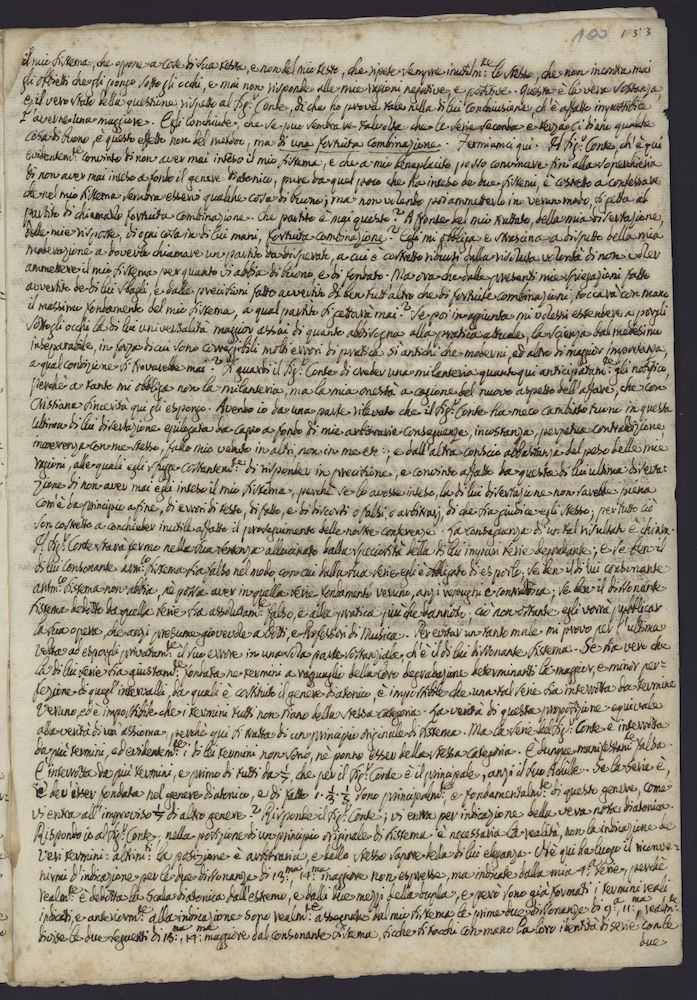 100 153
il mio sistema, che oppone a cose di sua testa, e non del mio testo, che ripete sempre inutilm:te lo stesso, che non incontra mai
gli obbietti che gli pongo sotto gli occhi, e mai non risponde alle mie ragioni negative, e positive. Questa è la vera sostanza,
e il vero stato della questione rispetto al Sig:r Conte, di che ho prova tale nella di lui Conclusione, ch'è affatto impossibile
l'averne una maggiore. Egli conchiude, che se può sembrare talvolta che le serie seconda e terza ci diano qualche
cosa di buono, è questo effetto non del metodo, ma di una fortuita combinazione. Fermiamci qui. Il Sig:r Conte, ch'è qui
evidentem:te convinto di non aver mai inteso il mio sistema, e che a mio beneplacito posso convincere fin alla soperchieria
di non aver mai inteso a fondo il genere diatonico, pure da quel poco che ha inteso de due sistemi, è costretto a confessare
che nel mio sistema sembra esservi qualche cosa di buono; ma non volendo poi ammetterlo in verun modo, si getta al
partito di chiamarlo fortuita combinazione. Che partito è mai questo? A fronte del mio trattato, della mia dissertazione,
delle mie risposte, di ogni cosa in di lui mani, fortuita combinazione? Egli mi obbliga e strascina a dispetto della mia
moderazione a doverlo chiamare un partito da disperato, a cui è costretto ridursi dalla risoluta volontà di non voler
ammettere il mio sistema per quanto vi abbia di buono, e di fondato. Ma ora che dalle presenti mie spiegazioni fatto
avvertito de di lui sbagli, e dalle precisioni fatto avvertito di ben tutt'altro che di fortuite combinazioni, toccarà con mano
il massimo fondamento del mio sistema, a qual partito si gettarà mai? Se poi in aggiunta mi volessi estendere a porgli
sotto gli occhi la di lui universalità maggior assai di quanto abbisogna alla pratica attuale, la scienza dal medesimo
inseparabile, in forza di cui sono correggibili molti errori di pratica sì antichi che moderni, ed altro di maggior importanza,
a qual condizione si trovarebbe mai? Si guardi il Sig:r Conte di creder una millanteria quanto qui anticipatam:te gli notifico,
perchè a tanto mi obbliga non la millanteria, ma la mia onestà a cagione del nuovo aspetto dell'affare, che con
Cristiana sincerità qui gli espongo. Avendo io da una parte rilevato che il Sig:r Conte ha meco cambiato tuono in questa
ultima di lui dissertazione epilogata da capo a fondo di mie arbitrarie conseguenze, incostanza, perpetua contradizione,
incoerenza con me stesso, fatto mio veduto in altri, non in me etc:, e dall'altra conscio abbastanza del peso delle mie
ragioni, alle quali egli sfugge costantem:te di risponder in precisione, e convinto affatto da questa di lui ultima disserta-
zione di non aver mai egli inteso il mio sistema, perchè se lo avesse inteso, la di lui dissertazione non sarebbe piena
com'è da principio a fine, di errori di testo, di fatto, e di discorsi o falsi, o arbitrarj, di che sia giudice egli stesso; per tutto ciò
son costretto a conchiuder inutile affatto il proseguimento delle nostre conferenze. La conseguenza di un tal risultato è chiara.
Il Sig:r Conte starà fermo nella sua sentenza allucinato dalla speciosità della di lui impari serie degradante; e se ben il
di lui consonante arm:co sistema sia falso nel modo, con cui dalla sua serie egli è obbligato di esporlo, se ben il di lui consonante
aritm:co sistema non abbia, nè possa aver in quella serie fondamento veruno, anzi repugni e contradica; se ben il dissonante
sistema dedotto da quella serie sia assolutam:te falso, e alla pratica più che dannoso, ciò non ostante egli vorrà pubblicar
la sua opera, che anzi presume giovevole a Dotti, e Professori di Musica. Per evitar un tanto male mi provo per l'ultima
volta ad esporgli privatam:te il suo errore in una sola parte sostanziale, ch'è il di lui dissonante sistema. Se sia vero che
la di lui serie sia giustam:te fondata ne termini a ragguaglio della loro degradazione determinanti la maggior, e minor per-
fezione di quegl'intervalli, da quali è costituito il genere diatonico, è impossibile che una tal serie sia interrotta da termine
veruno, ed è impossibile che i termini tutti non siano della stessa categoria. La verità di questa proposizione equivale
alla verità di un assioma, perchè qui si tratta di un principio originale di sistema. Ma la serie del Sig:r Conte è interrotta
da più termini, ed evidentem:te i di lui termini non sono, nè ponno esser della stessa categoria. È dunque manifestam:te falsa.
È interrotta da più termini, e primo di tutti da 1/7, che per il Sig:r Conte è il principale, anzi il suo Achille. Se la serie è,
e dev'esser fondata nel genere diatonico, e di fatto 1. 1/3. 1/5 sono principalm:te e fondamentalm:te di questo genere, come
vi entra all'improviso 1/7 di altro genere? Risponde il Sig:r Conte; vi entra per indicazione della vera nota diatonica.
Rispondo io al Sig:r Conte, nella posizione di un principio originale di sistema è necessaria la realità, non la indicazione de
veri termini: altrim:ti la posizione è arbitraria, e dello stesso sapore della di lui eleganza. Nè qui ha luogo il rinvenir-
nirmi d'indicazione per le due dissonanze di 13:ma, 14:ma maggiore non espresse, ma indicate dalla mia 4:a serie, perchè
realm:te è dedotta la scala diatonica dall'estremo, e dalli due mezzi della dupla, e però sono già formati i termini reali
indicati, e anteriorm:te alla indicazione sono realm:te assegnate dal mio sistema le prime due dissonanze di 9:a, 11:ma realm:te
divise le due seguenti di 13:ma, 14:ma maggiore dal consonante sistema, sicchè si tocchi con mano la loro identità di serie con le
due